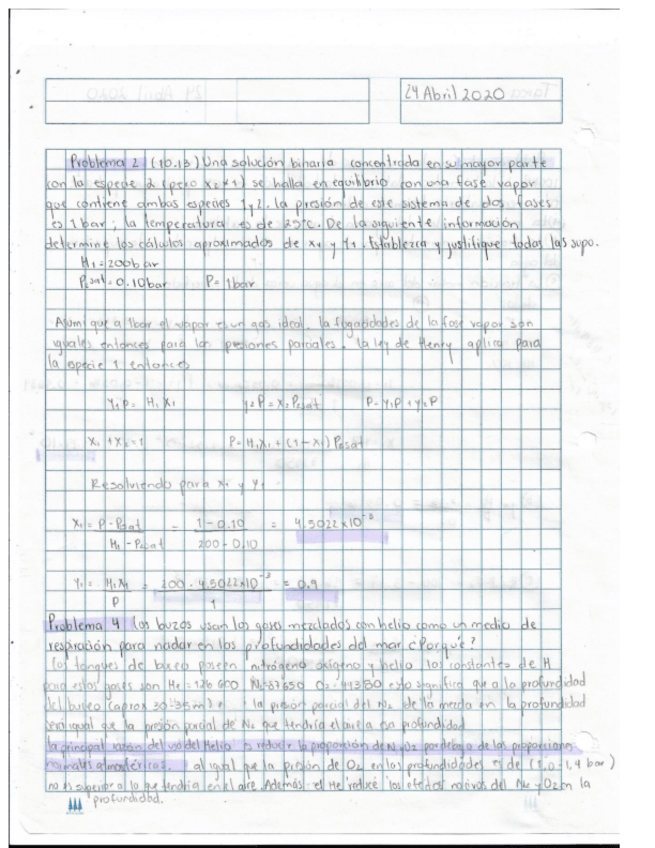 24 Abril 2020
Problema 2 (10.13) Una solución binaria concentrada en su mayor parte
con la especie 2 (pero x₂≠1) se halla en equilibrio con una fase vapor
que contiene ambas especies 1y2. la presión de este sistema de dos fases
es 1 bar; la temperatura es de 25°C. De la siguiente información
determine los cálculos aproximados de x₁ y y₁. Establezca y justifique todas las supo.
H₁=200bar
P₂sat=0.10bar P=1bar
Asumi que a 1bar el vapor es un gas ideal, la fugacidades de la fase vapor son
iguales entonces para las presiones parciales. la ley de Henry aplica para
la especie 1 entonces
y₁P= H₁X₁ y₂P=x₂P₂sat P=y₁P+y₂P
x₁+x₂=1 P=H₁X₁+(1-x₁)P₂sat
Resolviendo para x₁ y y₁
x₁= P-P₂sat / H₁-P₂sat = 1-0.10 / 200-0.10 = 4.5022x10⁻³
y₁= H₁X₁ / P = 200 · 4.5022x10⁻³ / 1 = 0.9
Problema 4 los buzos usan los gases mezclados con helio como un medio de
respiración para nadar en las profundidades del mar ¿Porqué?
Los tanques de buceo poseen nitrógeno oxigeno y helio las constantes de H
para estos gases son He=126 600 N₂=87650 O₂=44380 esto significa que a la profundidad
del buceo (aprox 30-35m) la presión parcial del N₂ de la mezcla en la profundidad
será igual que la presión parcial de N₂ que tendría el aire a esa profundidad
la principal razón del uso del Helio es reducir la proporción de N₂yO₂ por debajo de las proporciones
normales atmosféricas. al igual que la presión de O₂ en las profundidades es de (1.0-1,4 bar)
no es superior a lo que tendría en el aire. Además el He reduce los efectos nocivos del N₂ y O₂ en la
profundidad.